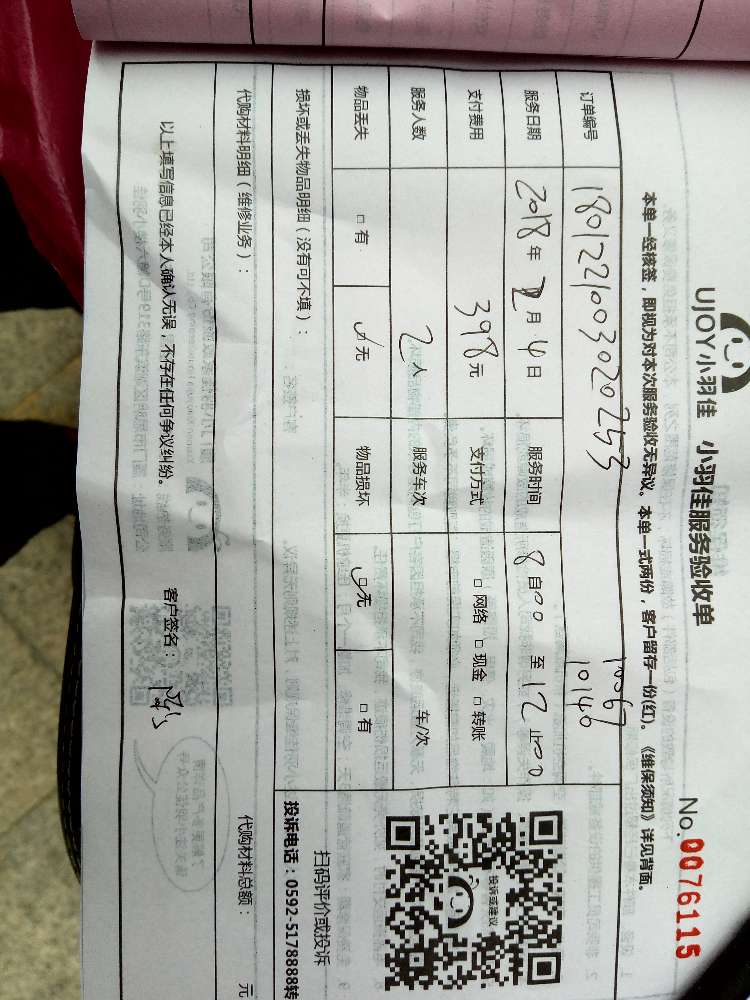 UJOY小羽佳 小羽佳服务验收单 No.0076115
本单一经核签，即视为对本次服务验收无异议。本单一式两份，客户留存一份(红)。《维保须知》详见背面。
订单编号 180122100302025 10067
10140
服务日期 2018年2月4日 服务时间 8自00至12止00
支付费用 398元 支付方式 □网络 □现金 □转账
服务人数 2人 服务车次 车/次
物品丢失 □有 ☑无 物品损坏 ☑无 □有
损坏或丢失物品明细（没有可不填）：
代购材料明细（维修业务）： 代购材料总额： 元
以上填写信息已经本人确认无误，不存在任何争议纠纷。 客户签名：
投诉或建议
扫码评价或投诉
投诉电话：0592-5178888转